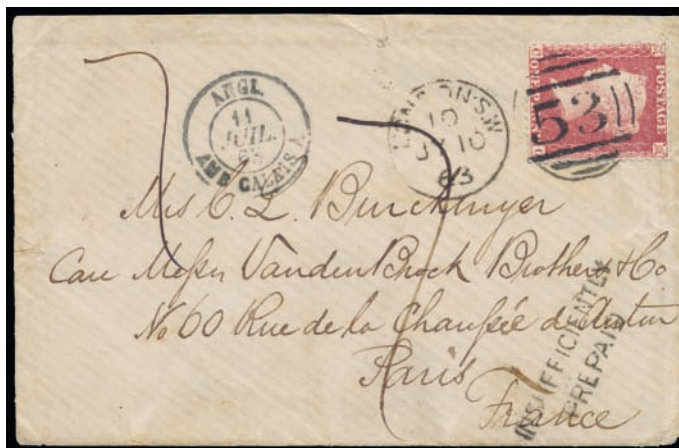 ANGL.
11
JUIL.
63
AMB. CALAIS A
LONDON·S.W
10
JY 10
63
POSTAGE
ONE PENNY
53
Care Messrs Vandenbrock Brothers & Co
No 60 Rue de la Chaussée d'Antin
Paris
France
INSUFFICIENTLY
PREPAID